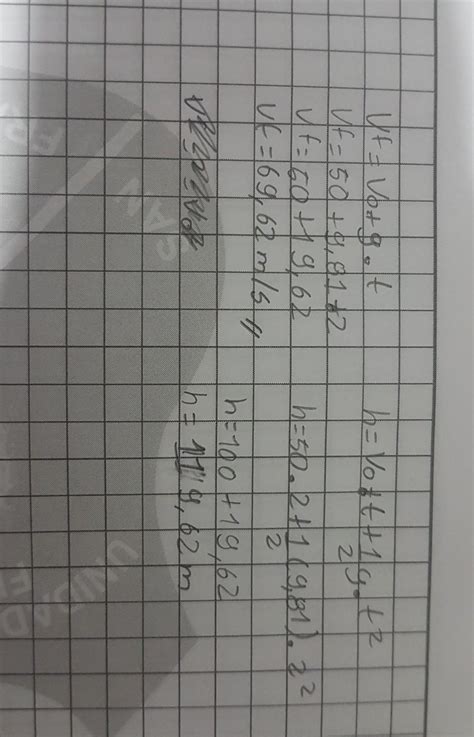 Vf = Vo + g . t
Vf = 50 + 9,81 . 2
Vf = 50 + 19,62
Vf = 69,62 m/s //
h = Vo . t + 1/2 g . t²
h = 50 . 2 + 1/2 (9,81) . 2²
h = 100 + 19,62
h = 119,62 m
SAN
UNIDAD